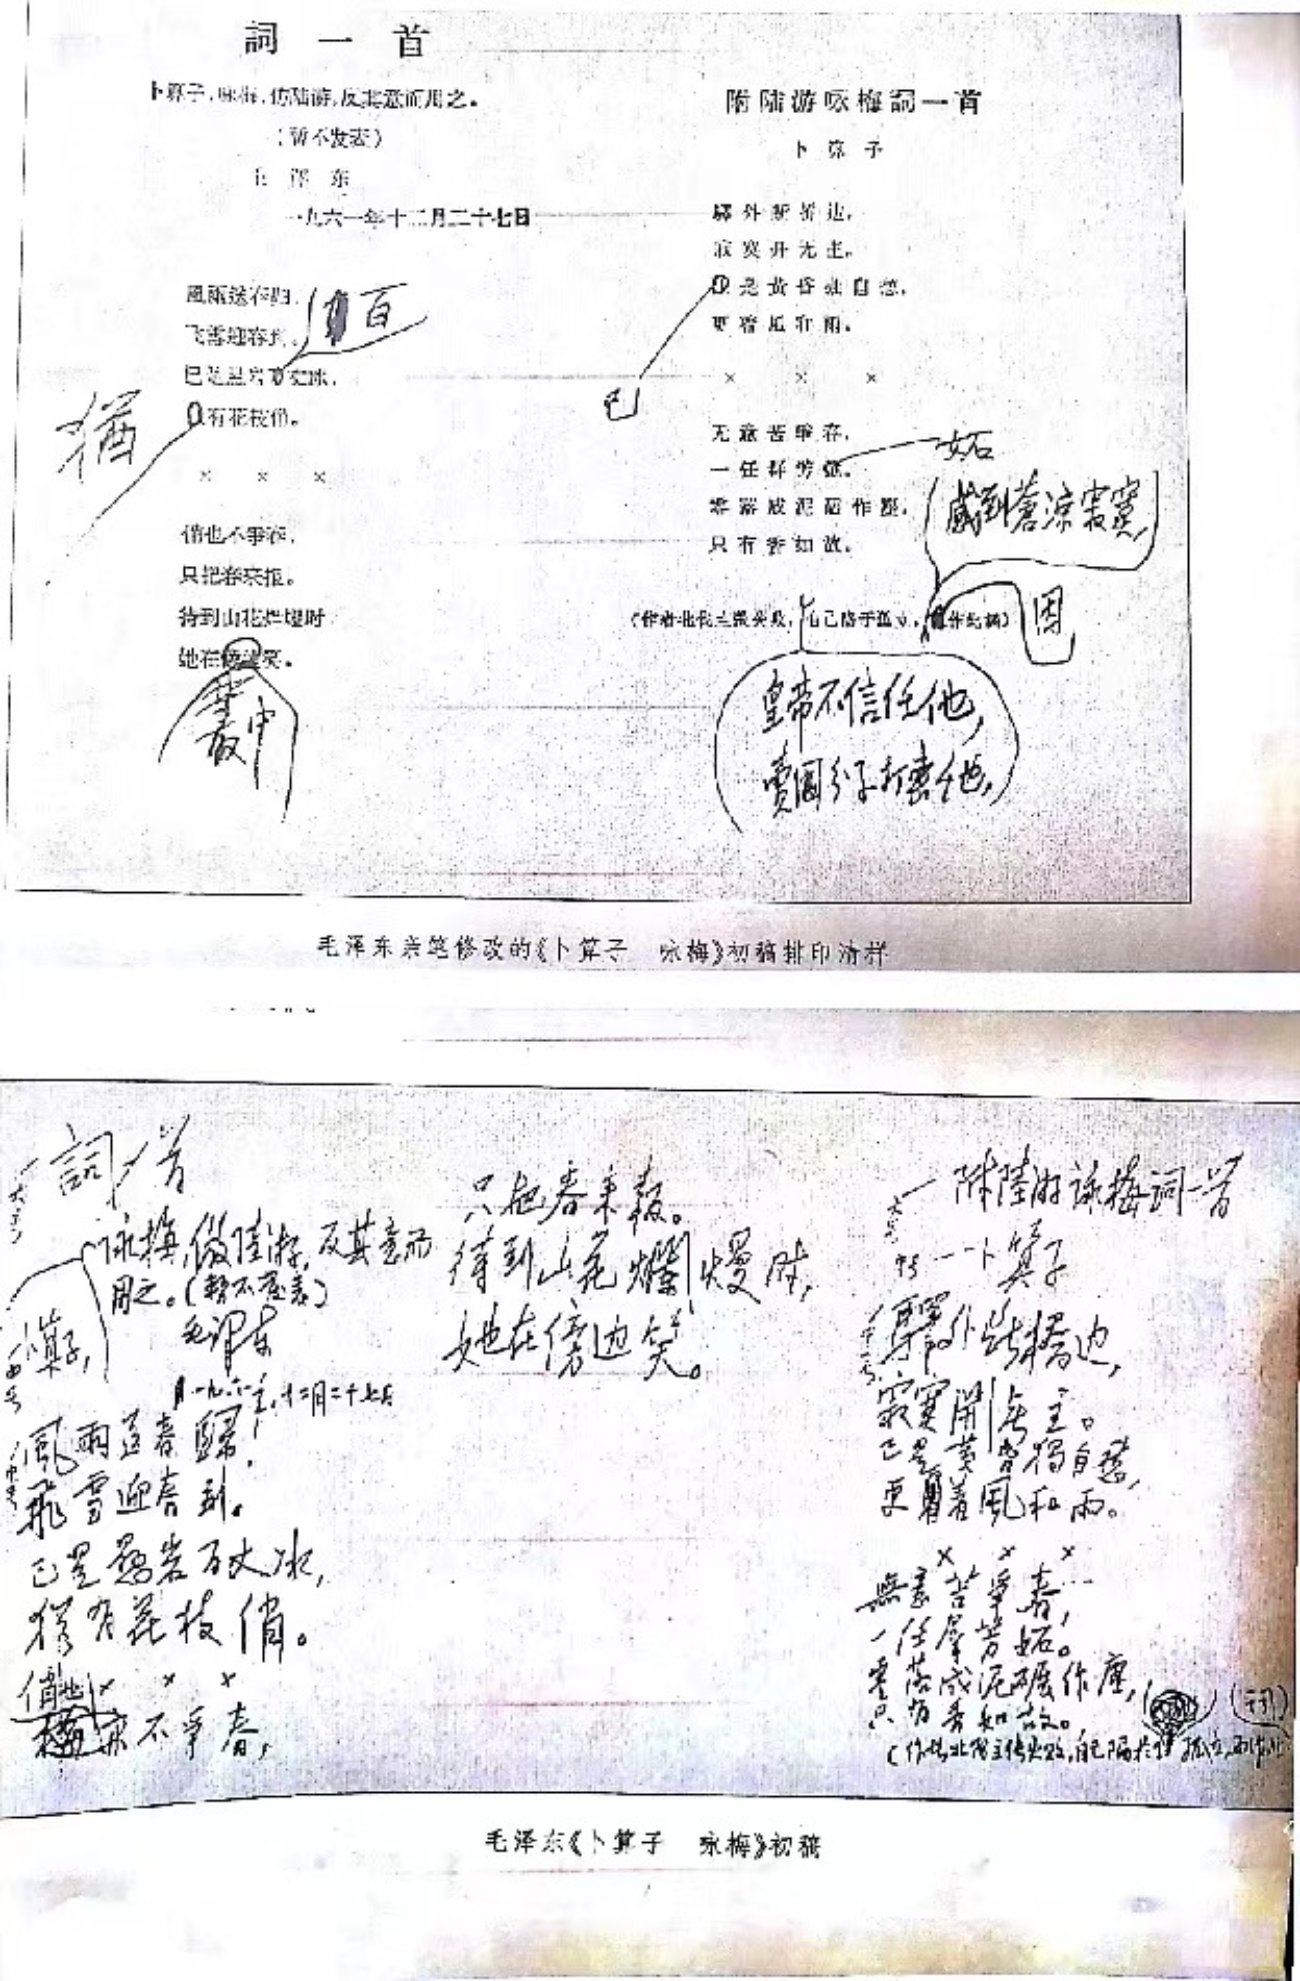 詞一首
卜算子,咏梅,仿陆游,反其意而用之。
(暂不发表)
毛泽东
一九六一年十二月二十七日
風雨送春归,
飞雪迎春到。
百
已是悬岩万丈冰,
猶
有花枝俏。
× × ×
俏也不争春,
只把春来报。
待到山花烂熳时
她在傍边笑。
叢中
附陆游咏梅詞一首
卜算子
驛外断桥边,
寂寞开无主。
是黄昏独自愁,
更着風和雨。
已
× × ×
无意苦争春,
一任群芳
妬
零落成泥碾作塵,
只有香如故。
感到蒼涼寂寞,
(作者北伐主张失败,自己陷于孤立,作此詞)
因
皇帝不信任他,
賣國分子打击他,
毛泽东亲笔修改的《卜算子 咏梅》初稿排印清样
詞一首
咏梅,倣陸游,反其意而
用之。(暫不发表)
毛泽东
卜算子,
一九六一年,十二月二十七日
風雨送春歸,
飛雪迎春到。
已是懸岩百丈冰,
猶有花枝俏。
× × ×
俏也
梅亦不爭春,
只把春来報。
待到山花爛熳时,
她在傍边笑。
附陸游詠梅詞一首
卜算子
驛外断橋边,
寂寞開無主。
已是黄昏獨自愁,
更著風和雨。
× × ×
無意苦爭春,
一任羣芳妬。
零落成泥碾作塵,
只有香如故。
(作者北伐主張失敗,自己陷於孤立,而作
毛泽东《卜算子 咏梅》初稿